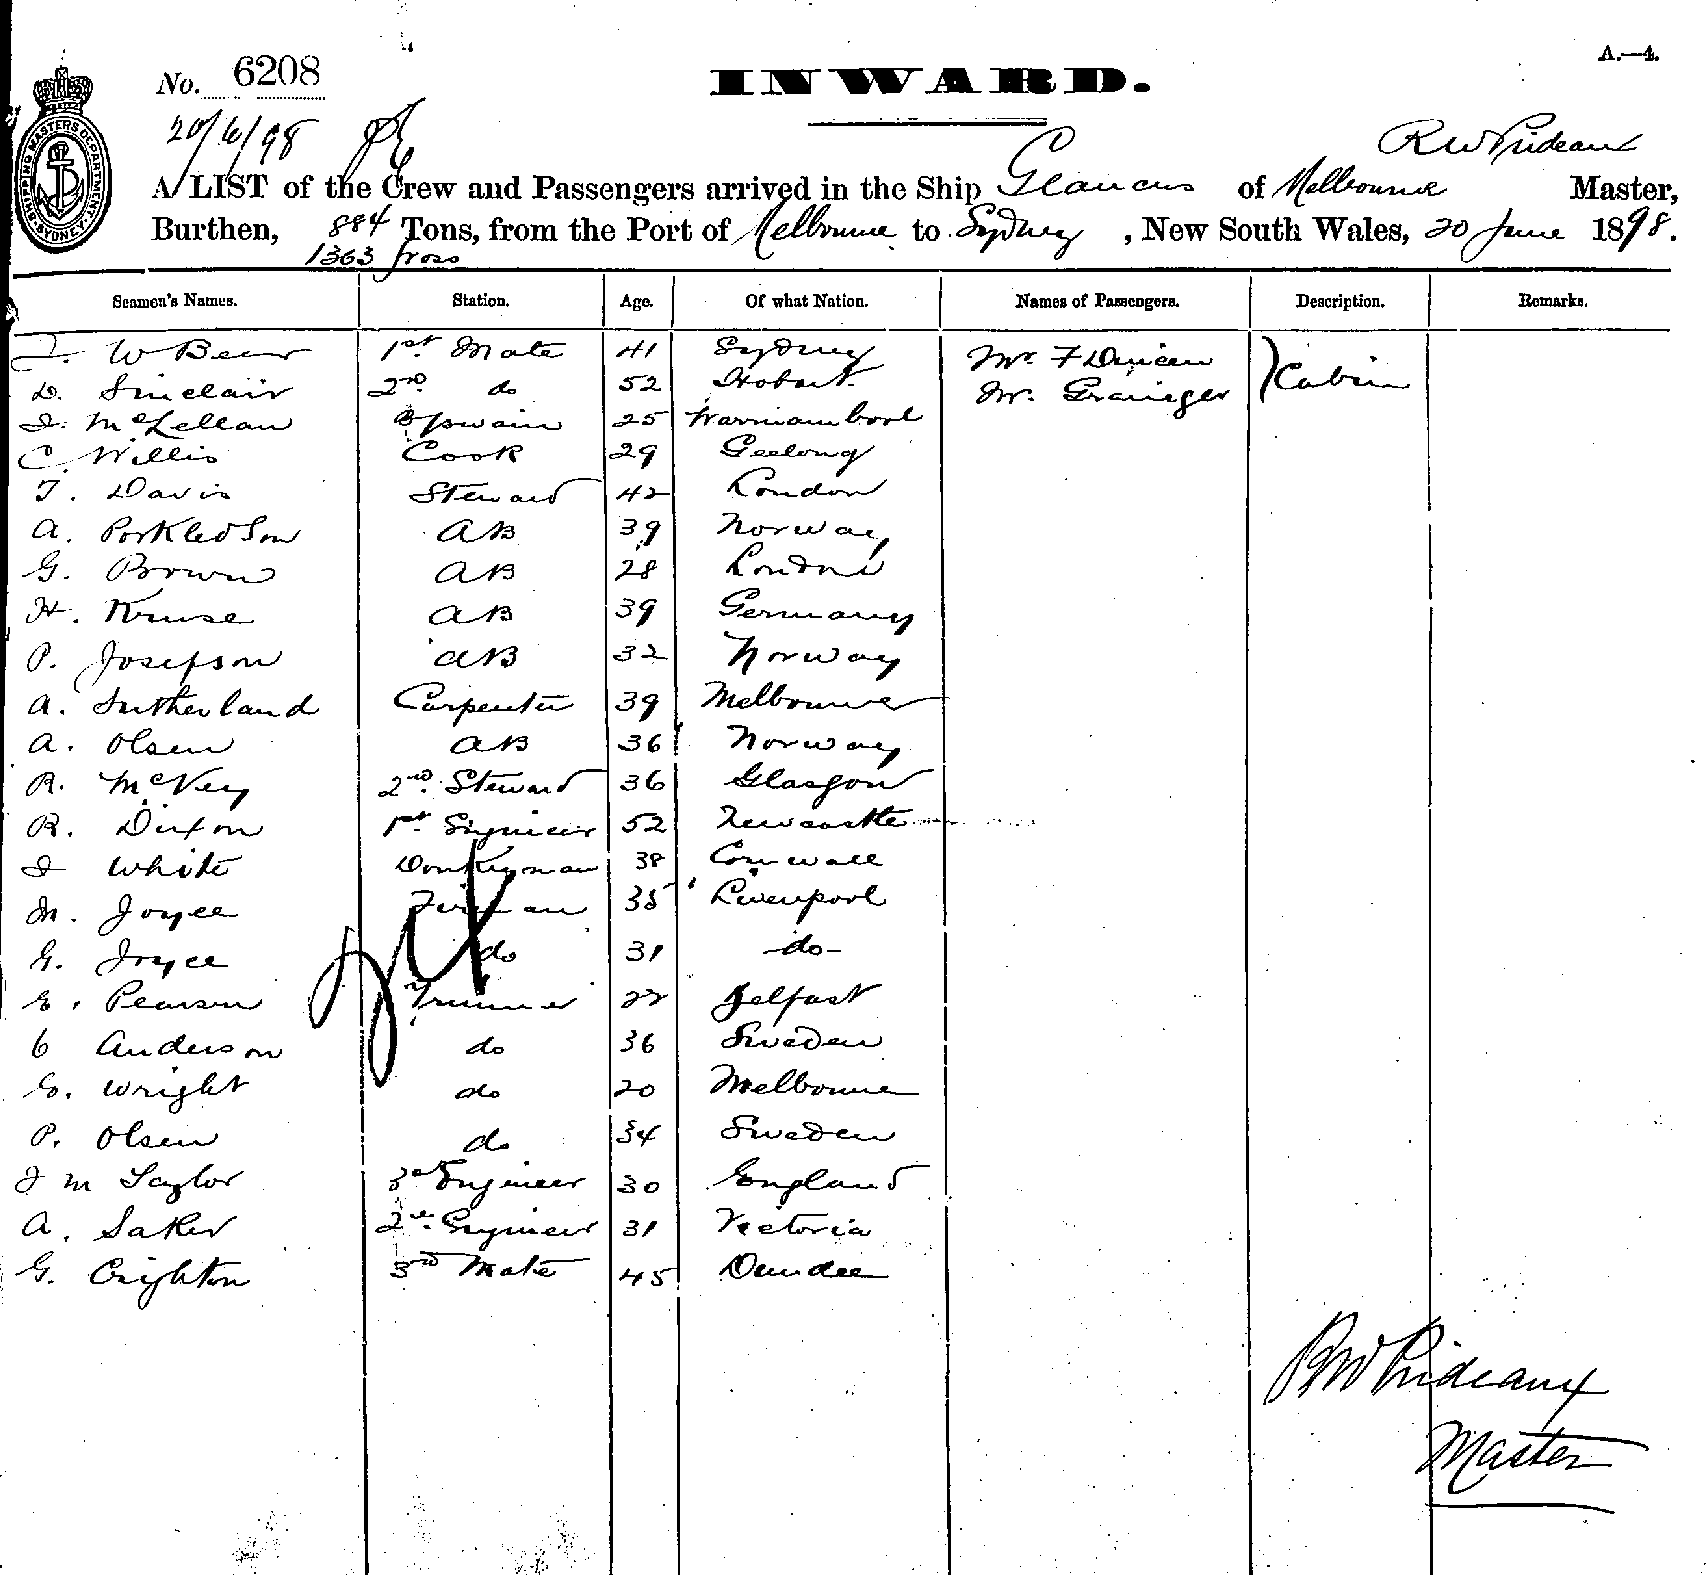 A.—4.
No. 6208
INWARD.
SHIPPING MASTERS DEPARTMENT. SYDNEY.
20/6/98
R W Prideaux
A LIST of the Crew and Passengers arrived in the Ship Glaucus of Melbourne Master,
Burthen, 884 Tons, from the Port of Melbourne to Sydney, New South Wales, 20 June 1898.
1363 gross
Seamen's Names. Station. Age. Of what Nation. Names of Passengers. Description. Remarks.
W 1st Mate 41 Sydney Mr F Cabin
D. Sinclair 2nd do 52 Hobart Mr. Grainger
McLellan 25 Warrnambool
C. Willis Cook 29 Geelong
T. Davis Steward 42 London
A. AB 39 Norway
G. Brown AB 28 London
H. Kruse AB 39 Germany
P. Josefson AB 32 Norway
A. Sutherland Carpenter 39 Melbourne
A. Olsen AB 36 Norway
R. McVey 2nd Steward 36 Glasgow
R. Dixon 1st Engineer 52 Newcastle
J White Donkeyman 38 Cornwall
M. Joyce Fireman 35 Liverpool
G. Joyce do 31 -do-
E. Pearson Trimmer 22 Belfast
C Anderson do 36 Sweden
G. Wright do 20 Melbourne
P. Olsen do 34 Sweden
J M Taylor 3rd Engineer 30 England
A. Saker 2nd Engineer 31 Victoria
G. Crighton 3rd Mate 45 Dundee
RW Prideaux
Master